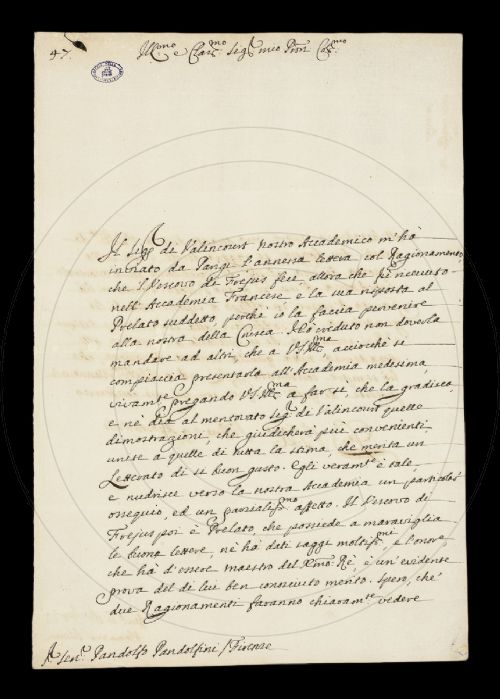 47.
Ill.mo e Clar.mo Sig.r mio Pron Col.mo
Il Sig.r di Valincourt nostro Accademico m'hà
inviato da Parigi l'annessa lettera col Ragionamento,
che il Vescovo di Frejus fece, allora che fù ricevuto
nell'Accademia Francese e la sua risposta al
Prelato suddetto, perche io la faccia pervenire
alla nostra della Crusca. Hò creduto non doverla
mandare ad altri, che a V.S. Ill.ma, acciochè si
compiaccia presentarla all'Accademia medesima,
vivam.te pregando V.S. Ill.ma a far sì, che la gradisca,
e nè dia al mentovato Sig.r di Valincourt quelle
dimostrazioni, che giudicherà più convenienti
unite a quelle di tutta la stima, che merita un
Letterato di sì buon gusto. Egli veram.te è tale,
e nudrisce verso la nostra Accademia un particolar
ossequio, ed un parzialiss.mo affetto. Il Vescovo di
Frejus poi è Prelato, che possiede a maraviglia
le buone lettere, ne hà dati saggi moltiss.mi, e l'onore
che hà d'essere maestro del Xmo. Rè, è un'evidente
prova del di lui ben conosciuto merito. Spero, che
due Ragionamenti faranno chiaram.te vedere
Sen.r Pandolfo Pandolfini / Firenze